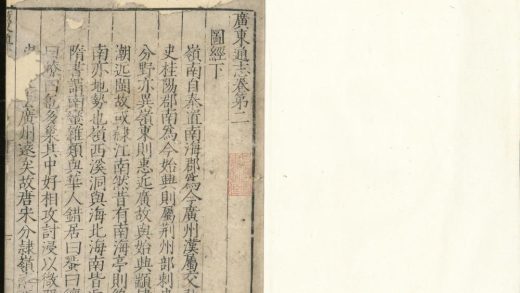 廣東通志卷第二
圖經下
嶺南自秦道南海郡為今廣州漢屬交
史桂陽郡南為今始興則屬荆州部刺史
分野亦異嶺東則惠近廣故與始興韻
潮近閩故或隸江南然昔有南海亭則
南亦地勢也嶺西溪洞與海北海南皆
隋書謂南蠻雜類與華人錯居曰蜑曰
曰 四 多 其中好相攻討浸以微
廣州遠矣故唐宋分隸嶺